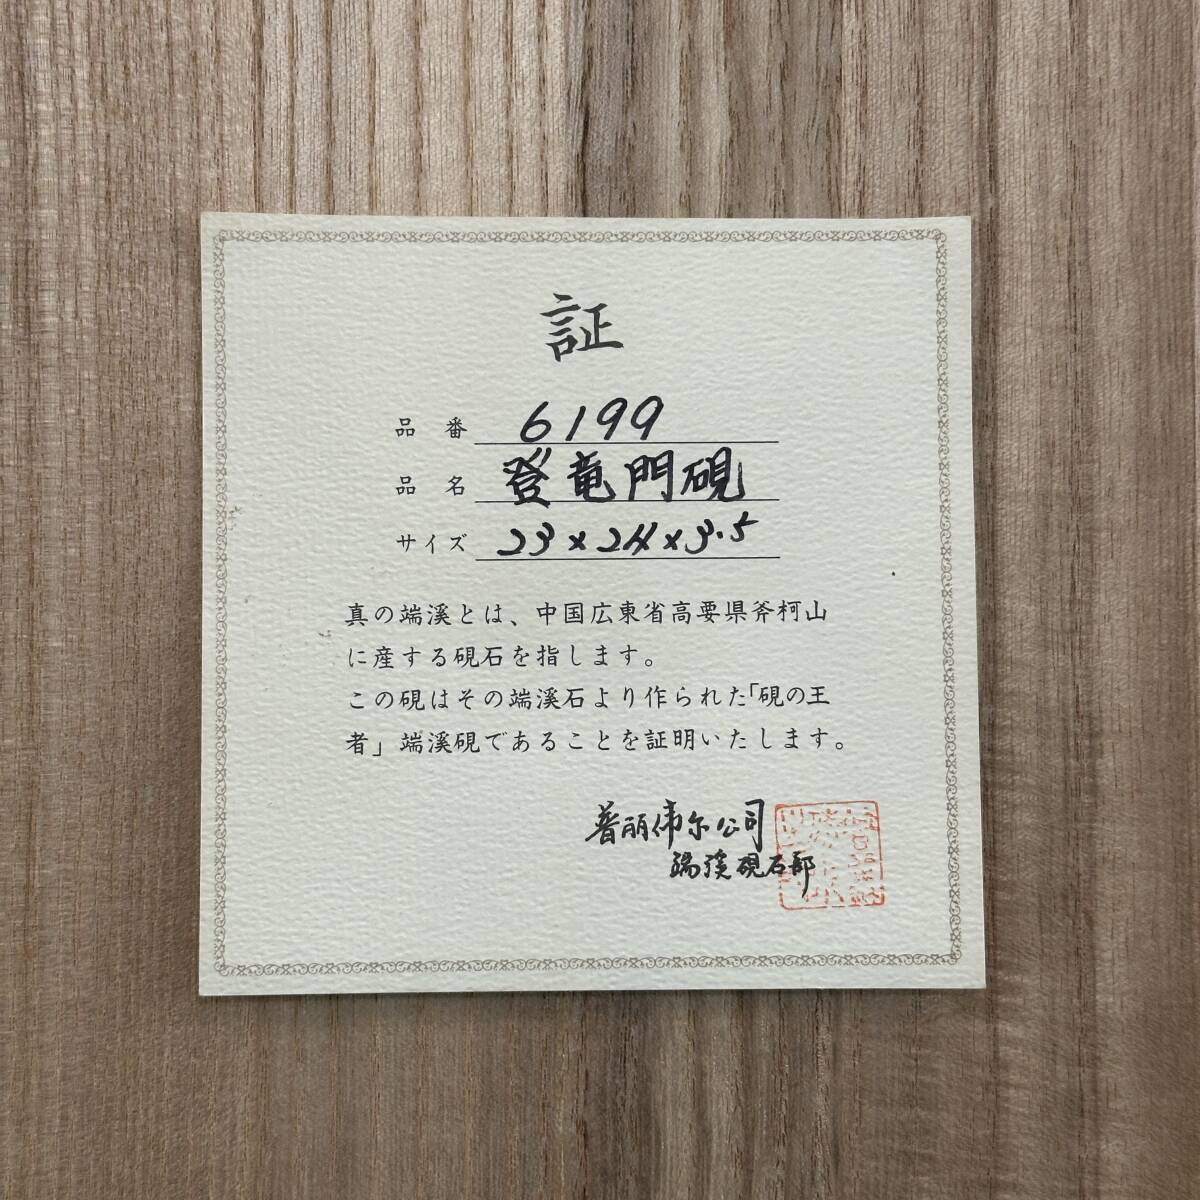 証
品番 6199
品名 登竜門硯
サイズ 23×24×3.5
真の端溪とは、中国広東省高要県斧柯山
に産する硯石を指します。
この硯はその端溪石より作られた「硯の王
者」端溪硯であることを証明いたします。
普丽伟尔公司
端溪硯石部